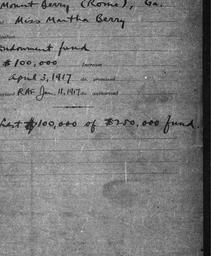 Mount Berry (Rome), Ga.
Miss Martha Berry
Endowment fund
$100,000 Increase
April 3, 1917 as promised
RAF Jan. 11, 1917 as authorized
Last $100,000 of $250,000 fund.